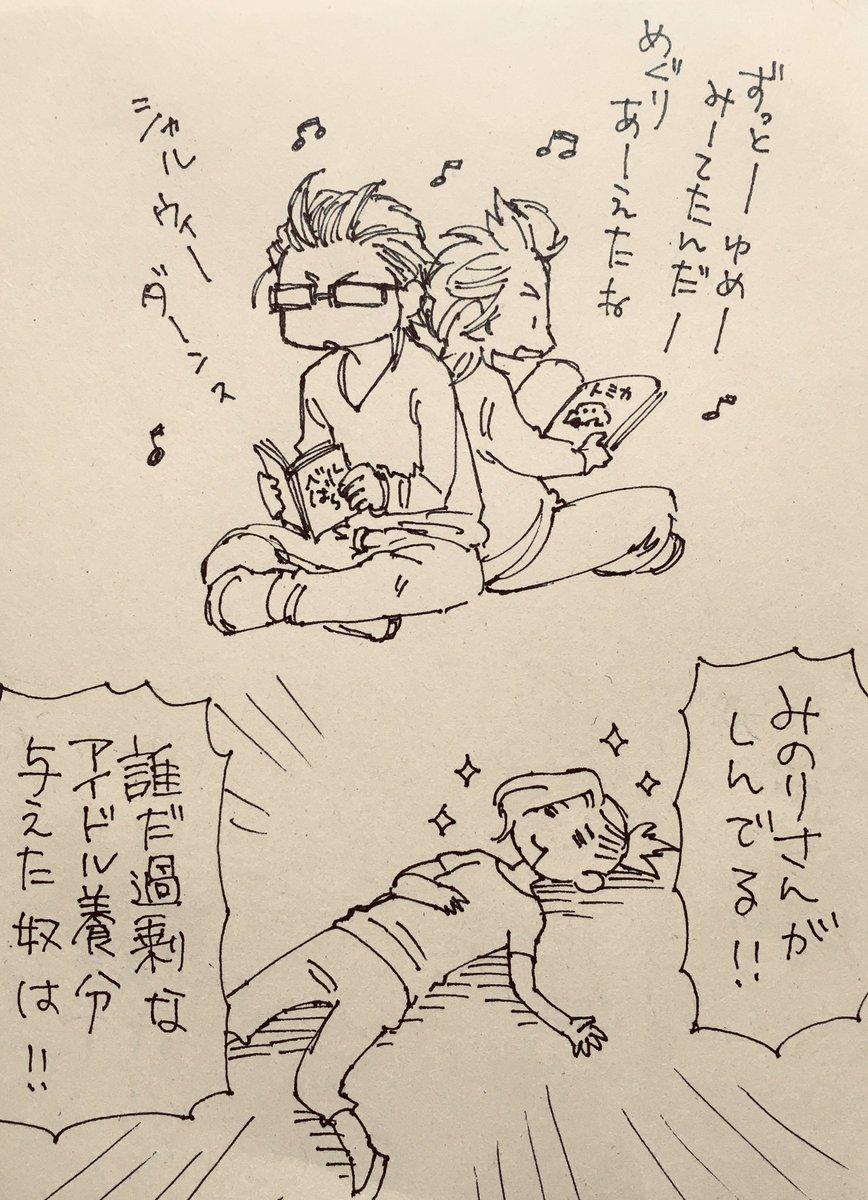 ずっとーゆめー
みーてたんだー
めぐり
あーえたね
シャルウィー
ダーンス
トミカ
ベル
ばら
みのりさんが
しんでる!!
誰だ過剰な
アイドル養分
与えた奴は!!